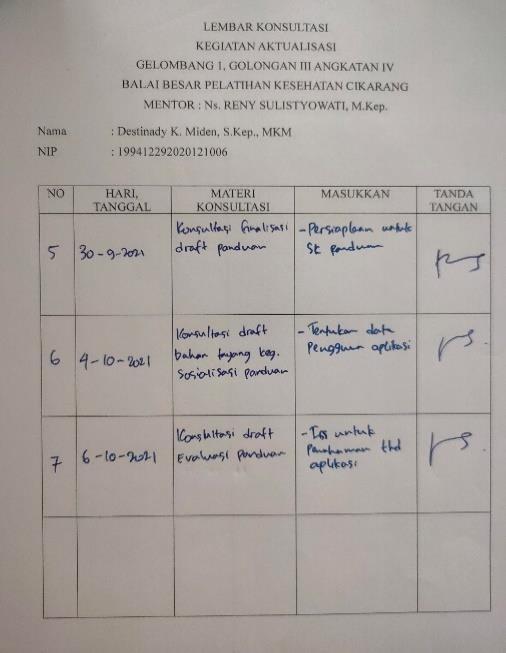 LEMBAR KONSULTASI
KEGIATAN AKTUALISASI
GELOMBANG 1, GOLONGAN III ANGKATAN IV
BALAI BESAR PELATIHAN KESEHATAN CIKARANG
MENTOR : Ns. RENY SULISTYOWATI, M.Kep.
Nama : Destinady K. Miden, S.Kep., MKM
NIP : 199412292020121006
NO HARI, TANGGAL MATERI KONSULTASI MASUKKAN TANDA TANGAN
5 30-9-2021
Konsultasi finalisasi
draft panduan
- Persiapkan untuk
SK panduan
6 4-10-2021
Konsultasi draft
bahan tayang keg.
Sosialisasi panduan
- Tentukan data
Pengguna aplikasi
7 6-10-2021
Konsultasi draft
Evaluasi panduan
- untuk
thd
aplikasi